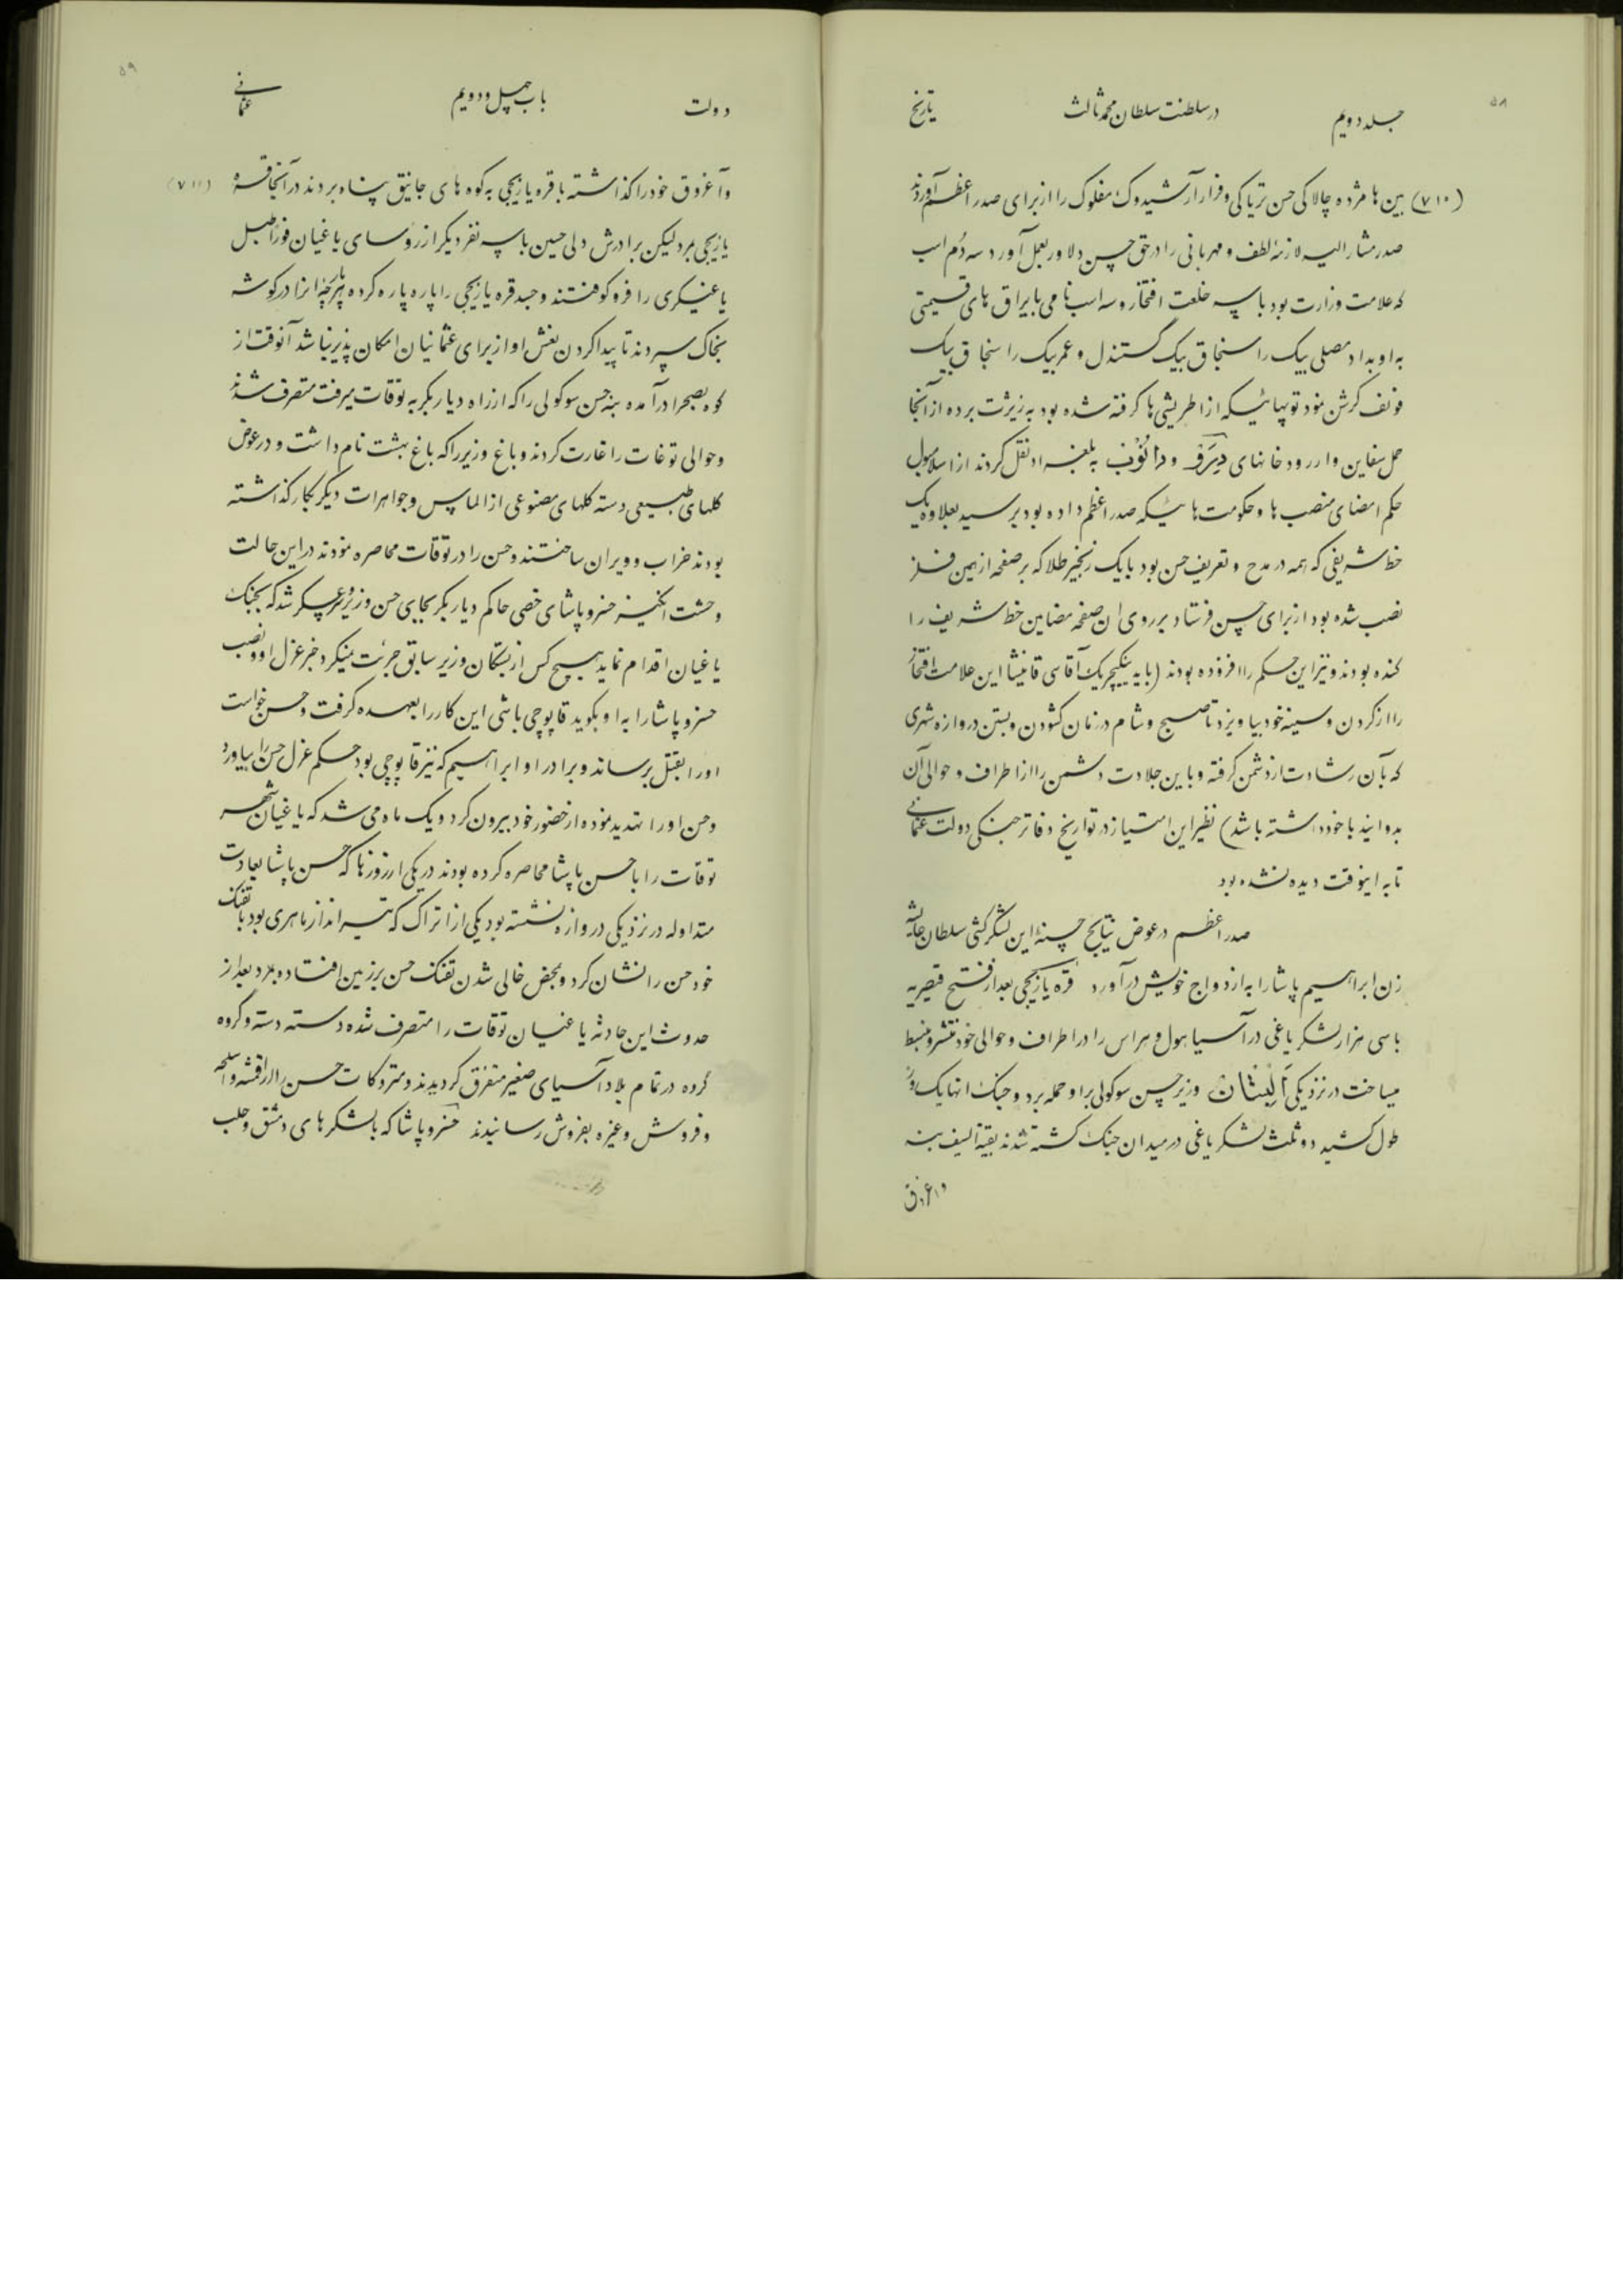 ۵۸
جلد دویم در سلطنت سلطان محمد ثالث تاریخ
(۷۱۰) بین‌ها مژده چالاکی حسن تریاکی و فرار آرشیدوک مفلوک را از برای صدر اعظم آوردند
صدر مشار الیه لازمهٔ لطف و مهربانی را در حق حسن دلاور بعمل آورد سه دُم اسب
که علامت وزارت بود با سه خلعت افتخار و سه اسب نامی با یراق های قیمتی
به او بداد مصلی بیک را سنجاق بیک گستندل و عمر بیک را سنجاق بیک
فونف کرشن نمود توپهائیکه از اطریشی ها گرفته شده بود به زیژت برده از آنجا
حمل سفاین و از رودخانهای دیرَو و دانُوب به بلغراد نقل کردند از اسلامبول
حکم امضای منصب ها و حکومت هائیکه صدر اعظم داده بود برسید بعلاوه یک
خط شریفی که همه در مدح و تعریف حسن بود با یک زنجیر طلا که بر صفحه از همین فلز
نصب شده بود از برای حسن فرستاد بر روی ان صفحه مضامین خط شریف را
کنده بودند و نیز این حکم را افزوده بودند (باید ینکیچریک آقاسی قانیشا این علامت افتخار
را از گردن و سینه خود بیاویزد تا صبح و شام در زمان گشودن و بستن دروازه شهری
که بآن رشادت از دشمن گرفته و باین جلادت دشمن را از اطراف و حوالی آن
بدوانید با خود داشته باشد) نظیر این امتیاز در تواریخ دفاتر جنگی دولت عثمانی
تا به اینوقت دیده نشده بود
صدر اعظم در عوض نتایج حسنهٔ این لشکرکشی سلطان عایشه
زن ابراهیم پاشا را به ازدواج خویش در آورد قره یازیجی بعد از فتح قیصریه
با سی هزار لشکر یاغی در آسیا هول و هراس را در اطراف و حوالی خود منتشر و منبسط
میساخت در نزدیکی اَلبِشان وزیر حسن سوکولی بر او حمله برد و جنگ انها یک روز
طول کشید دو ثلث لشکر یاغی در میدان جنگ کشته شدند بقیة السیف بنه
و اغروق
۵۹
دولت باب چهل و دویم عثمانی
(۷۱۱) و آغروق خود را گذاشته با قره یازیجی به کوه های جانیق پناه بردند در آنجا قره
یازیجی بمرد لیکن برادرش دلی حسین با سه نفر دیگر از رؤسای یاغیان فوراً طبل
یاغیگری را فرو کوفتند و جسد قره یازیجی را پاره پاره کرده هر پارچه انرا در گوشه
بخاک سپردند تا پیدا کردن نعش او از برای عثمانیان امکان پذیر نباشد آنوقت از
کوه بصحرا در آمده بنه حسن سوکولی را که از راه دیاربکر به توقات میرفت متصرف شدند
و حوالی توغات را غارت کردند و باغ وزیر را که باغ بهشت نام داشت و در عوض
گلهای طبیعی دسته گلهای مصنوعی از الماس و جواهرات دیگر بکار گذاشته
بودند خراب و ویران ساختند و حسن را در توقات محاصره نمودند در این حالت
وحشت انگیز خسرو پاشای خصی حاکم دیاربکر بجای حسن وزیر سر عسکر شد که بجنگ
یاغیان اقدام نماید هیچ کس از بستگان وزیر سابق جرئت نمیکرد خبر عزل او و نصب
خسرو پاشا را به او بگوید قاپوچی باشی این کار را بعهده گرفت و حسن خواست
او را بقتل برساند و برادر او ابراهیم که نیز قاپوچی بود حکم عزل حسن را بیاورد
و حسن او را تهدید نموده از حضور خود بیرون کرد و یک ماه می شد که یاغیان شهر
توقات را با حسن پاشا محاصره کرده بودند در یکی از روزها که حسن پاشا بعادت
متداوله در نزدیکی دروازه نشسته بود یکی از اتراک که تیرانداز ماهری بود با تفنگ
خود حسن را نشان کرد و بمحض خالی شدن تفنگ حسن بر زمین افتاده بمرد بعد از
حدوث این حادثه یاغیان توقات را متصرف شده دسته دسته و گروه
گروه در تمام بلاد آسیای صغیر متفرق گردیدند و متروکات حسن را از اقمشه و اسلحه
و فروش و غیره بفروش رسانیدند خسرو پاشا که با لشکرهای دمشق و حلب